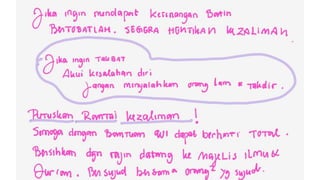 Jika ingin mendapat ketenangan Batin
BERTOBATLAH. SEGERA HENTIKAN KEZALIMAN.
Jika ingin TAUBAT
Akui kesalahan diri
Jangan menyalahkan orang lain & takdir.
Putuskan Rantai kezaliman !
Semoga dengan BANTUAN dapat berhenti TOTAL.
Bersihkan dgn rajin datang ke Majelis ilmu &
Qur'an. Bersujud bersama orang² yg sujud.